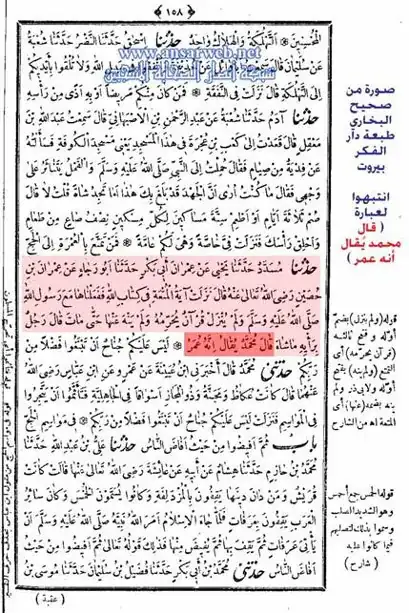 ﴿ ١٥٨ ﴾
الْمُحْسِنِينَ * التَّهْلُكَةُ وَالْهَلَاكُ وَاحِدٌ حَدَّثَنَا إِسْحٰقُ حَدَّثَنَا النَّضْرُ حَدَّثَنَا شُعْبَةُ
www.ansarweb.net
عَنْ سُلَيْمَانَ قَالَ سَمِعْتُ وَلَا تُلْقُوا بِأَيْدِيكُمْ
إِلَى التَّهْلُكَةِ قَالَ نَزَلَتْ فِي النَّفَقَةِ * فَمَنْ كَانَ مِنْكُمْ مَرِيضًا أَوْ بِهِ أَذًى مِنْ رَأْسِهِ
حَدَّثَنَا آدَمُ حَدَّثَنَا شُعْبَةُ عَنْ عَبْدِ الرَّحْمٰنِ بْنِ الْأَصْبَهَانِيِّ قَالَ سَمِعْتُ عَبْدَ اللّٰهِ بْنَ
مَعْقِلٍ قَالَ قَعَدْتُ إِلَى كَعْبِ بْنِ عُجْرَةَ فِي هٰذَا الْمَسْجِدِ يَعْنِي مَسْجِدَ الْكُوفَةِ فَسَأَلْتُهُ
عَنْ فِدْيَةٌ مِنْ صِيَامٍ فَقَالَ حُمِلْتُ إِلَى النَّبِيِّ صَلَّى اللّٰهُ عَلَيْهِ وَسَلَّمَ وَالْقَمْلُ يَتَنَاثَرُ عَلَى
وَجْهِي فَقَالَ مَا كُنْتُ أُرَى أَنَّ الْجَهْدَ قَدْ بَلَغَ بِكَ هٰذَا أَمَا تَجِدُ شَاةً قُلْتُ لَا قَالَ
صُمْ ثَلَاثَةَ أَيَّامٍ أَوْ أَطْعِمْ سِتَّةَ مَسَاكِينَ لِكُلِّ مِسْكِينٍ نِصْفُ صَاعٍ مِنْ طَعَامٍ
وَاحْلِقْ رَأْسَكَ فَنَزَلَتْ فِيَّ خَاصَّةً وَهْيَ لَكُمْ عَامَّةً * فَمَنْ تَمَتَّعَ بِالْعُمْرَةِ إِلَى الْحَجِّ
حَدَّثَنَا مُسَدَّدٌ حَدَّثَنَا يَحْيَى عَنْ عِمْرَانَ أَبِي بَكْرٍ حَدَّثَنَا أَبُو رَجَاءٍ عَنْ عِمْرَانَ بْنِ
حُصَيْنٍ رَضِيَ اللّٰهُ تَعَالَى عَنْهُ قَالَ نَزَلَتْ آيَةُ الْمُتْعَةِ فِي كِتَابِ اللّٰهِ فَفَعَلْنَاهَا مَعَ رَسُولِ اللّٰهِ
صَلَّى اللّٰهُ عَلَيْهِ وَسَلَّمَ وَلَمْ يُنْزَلْ قُرْآنٌ يُحَرِّمُهُ وَلَمْ يَنْهَ عَنْهَا حَتَّى مَاتَ قَالَ رَجُلٌ
بِرَأْيِهِ مَا شَاءَ قَالَ مُحَمَّدٌ يُقَالُ إِنَّهُ عُمَرُ * لَيْسَ عَلَيْكُمْ جُنَاحٌ أَنْ تَبْتَغُوا فَضْلًا مِنْ
رَبِّكُمْ حَدَّثَنِي مُحَمَّدٌ قَالَ أَخْبَرَنِي ابْنُ عُيَيْنَةَ عَنْ عَمْرٍو عَنِ ابْنِ عَبَّاسٍ رَضِيَ اللّٰهُ
عَنْهُمَا قَالَ كَانَتْ عُكَاظُ وَمَجَنَّةُ وَذُو الْمَجَازِ أَسْوَاقًا فِي الْجَاهِلِيَّةِ فَتَأَثَّمُوا أَنْ يَتَّجِرُوا
فِي الْمَوَاسِمِ فَنَزَلَتْ لَيْسَ عَلَيْكُمْ جُنَاحٌ أَنْ تَبْتَغُوا فَضْلًا مِنْ رَبِّكُمْ * فِي مَوَاسِمِ الْحَجِّ
بَابٌ ثُمَّ أَفِيضُوا مِنْ حَيْثُ أَفَاضَ النَّاسُ حَدَّثَنَا عَلِيُّ بْنُ عَبْدِ اللّٰهِ حَدَّثَنَا
مُحَمَّدُ بْنُ خَازِمٍ حَدَّثَنَا هِشَامٌ عَنْ أَبِيهِ عَنْ عَائِشَةَ رَضِيَ اللّٰهُ تَعَالَى عَنْهَا قَالَتْ كَانَتْ
قُرَيْشٌ وَمَنْ دَانَ دِينَهَا يَقِفُونَ بِالْمُزْدَلِفَةِ وَكَانُوا يُسَمَّوْنَ الْحُمْسَ وَكَانَ سَائِرُ
الْعَرَبِ يَقِفُونَ بِعَرَفَاتٍ فَلَمَّا جَاءَ الْإِسْلَامُ أَمَرَ اللّٰهُ نَبِيَّهُ صَلَّى اللّٰهُ عَلَيْهِ وَسَلَّمَ أَنْ
يَأْتِيَ عَرَفَاتٍ ثُمَّ يَقِفَ بِهَا ثُمَّ يُفِيضَ مِنْهَا فَذٰلِكَ قَوْلُهُ تَعَالَى ثُمَّ أَفِيضُوا مِنْ حَيْثُ
أَفَاضَ النَّاسُ حَدَّثَنِي مُحَمَّدُ بْنُ أَبِي بَكْرٍ حَدَّثَنَا فُضَيْلُ بْنُ سُلَيْمَانَ حَدَّثَنَا مُوسَى بْنُ
( عقبة )
صورة من
صحيح
البخاري
طبعة دار
الفكر
بيروت
انتبهوا
لعبارة
( قال
محمد يُقال
أنه عمر )
قوله (ولم ينزل) بضم
قوله الحمس جمع أحمس
وهو الشديد الصلب
وسموا بذلك لتصلبهم
فيما كانوا عليه
( شارح )